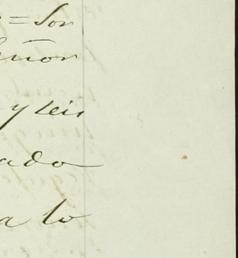 = Son
eñor
y seis
ado
a lo